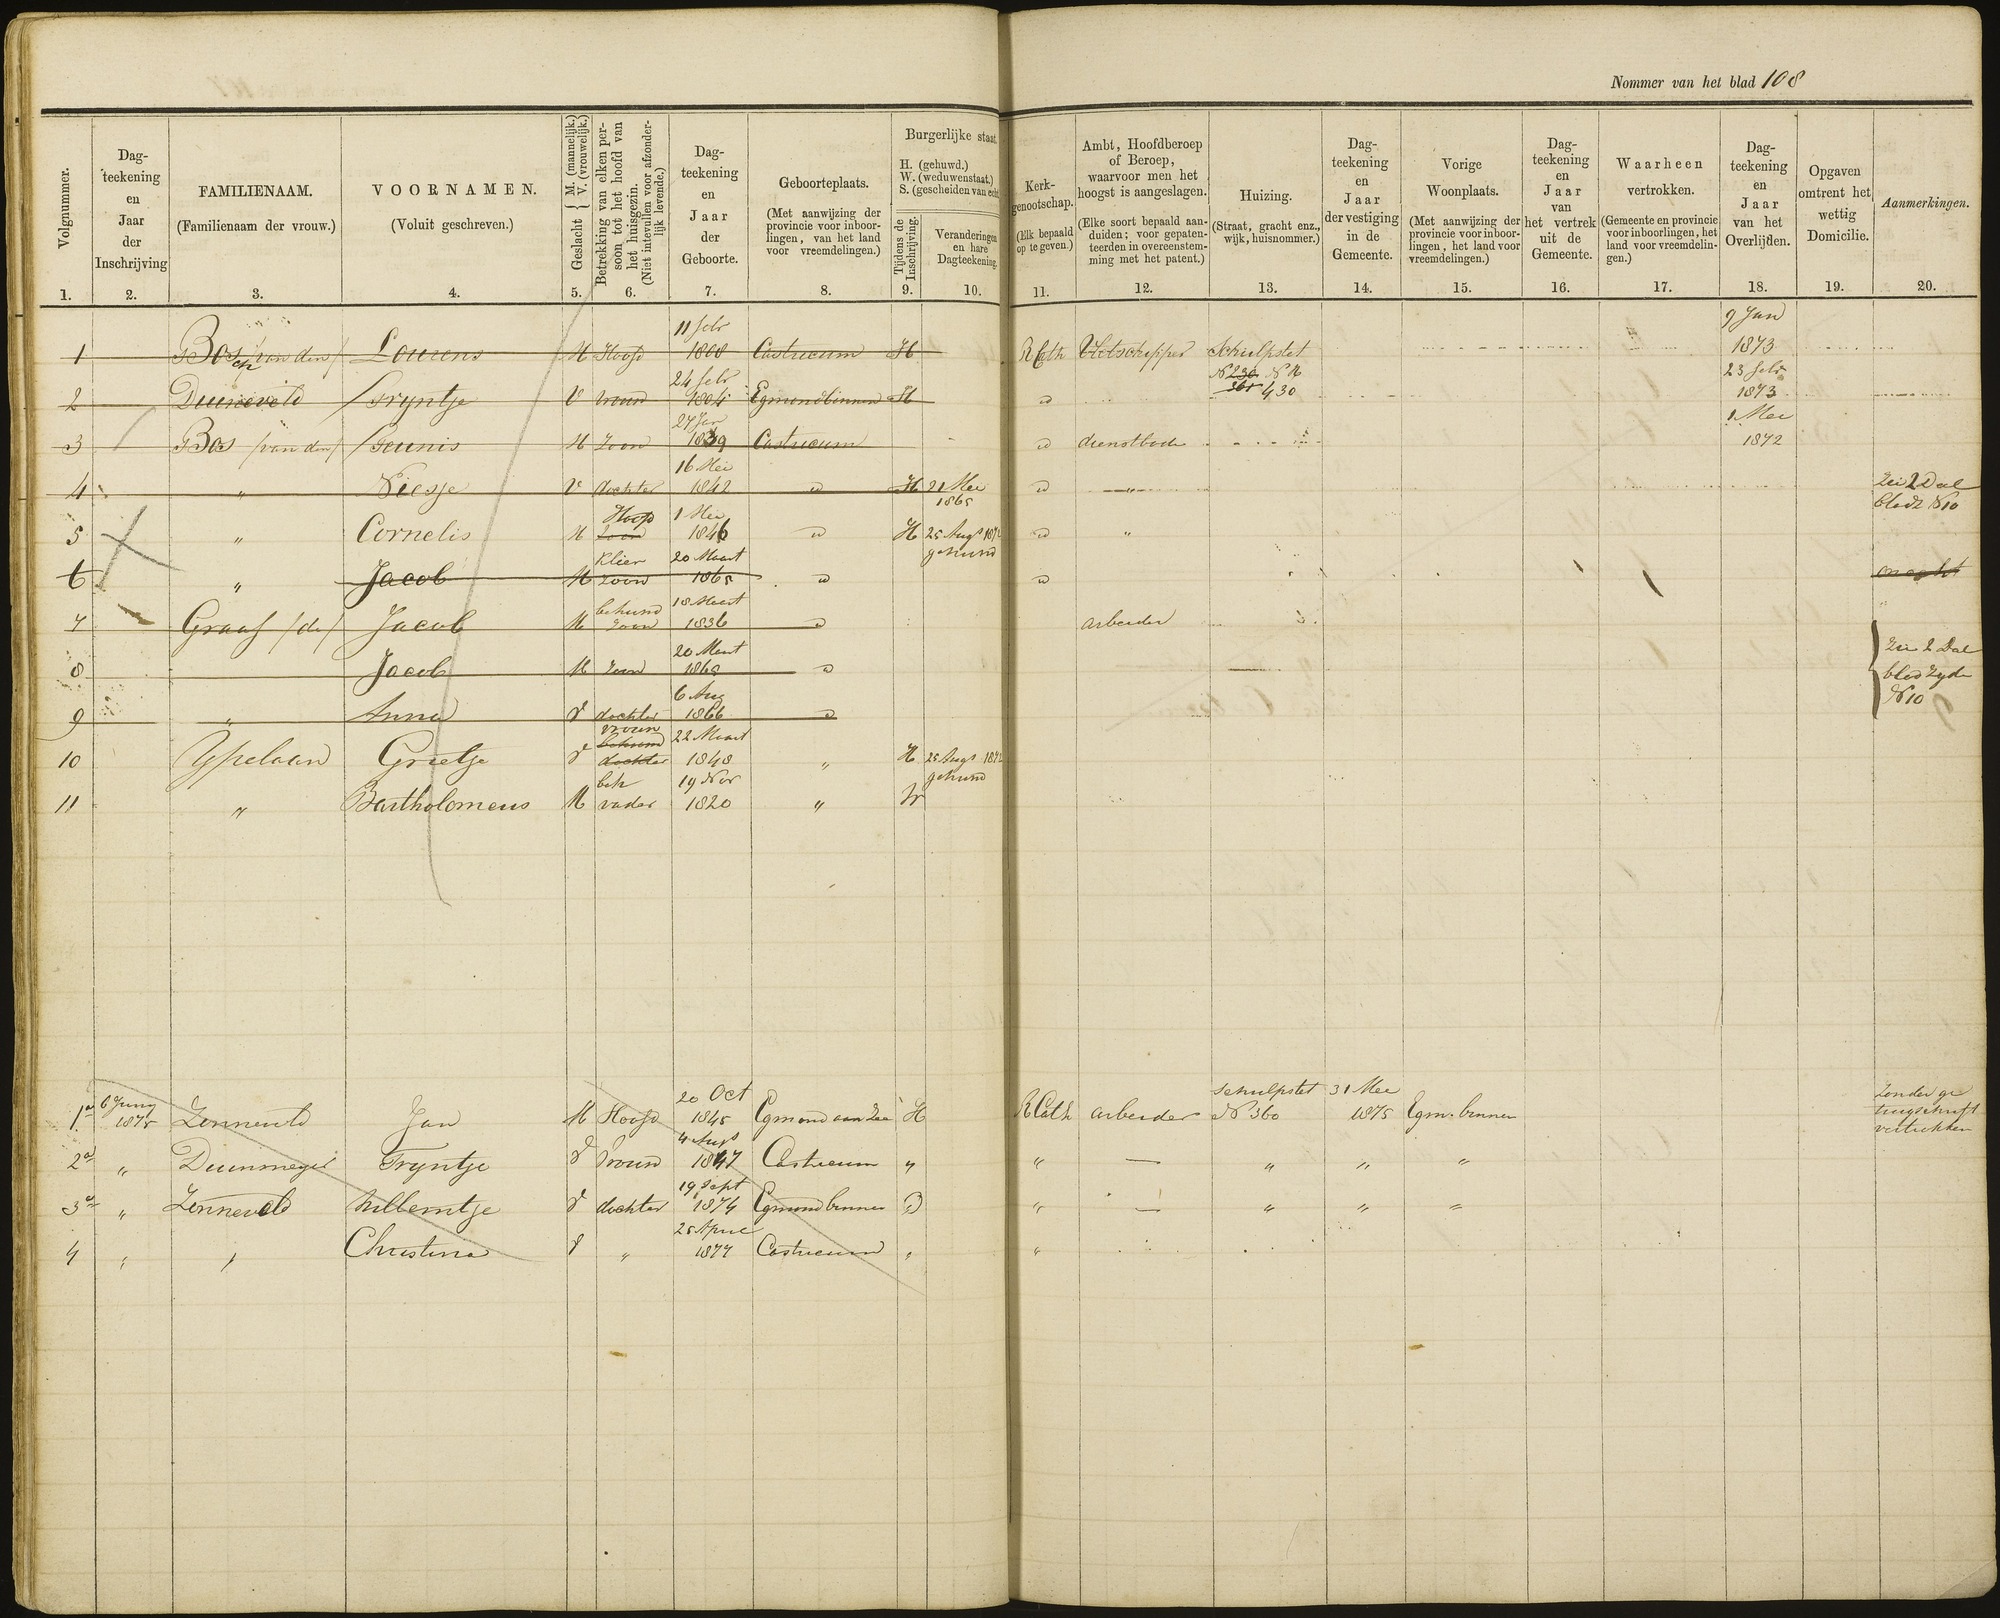 Nommer van het blad 108
Volgnummer.
Dag-
teekening
en
Jaar
der
Inschrijving
FAMILIENAAM.
(Familienaam der vrouw.)
VOORNAMEN.
(Voluit geschreven.)
Geslacht { M. (mannelijk.) V. (vrouwelijk.)
Betrekking van elken per-
soon tot het hoofd van
het huisgezin.
(Niet intevullen voor afzonder-
lijk levende.)
Dag-
teekening
en
Jaar
der
Geboorte.
Geboorteplaats.
(Met aanwijzing der
provincie voor inboor-
lingen, van het land
voor vreemdelingen.)
Burgerlijke staat
H. (gehuwd.)
W. (weduwenstaat.)
S. (gescheiden van echt
Tijdens de
Inschrijving.
Veranderingen
en hare
Dagteekening.
Kerk-
genootschap.
(Elk bepaald
op te geven.)
Ambt, Hoofdberoep
of Beroep,
waarvoor men het
hoogst is aangeslagen.
(Elke soort bepaald aan-
duiden; voor gepaten-
teerden in overeenstem-
ming met het patent.)
Huizing.
(Straat, gracht enz.,
wijk, huisnommer.)
Dag-
teekening
en
Jaar
der vestiging
in de
Gemeente.
Vorige
Woonplaats.
(Met aanwijzing der
provincie voor inboor-
lingen, het land voor
vreemdelingen.)
Dag-
teekening
en
Jaar
van
het vertrek
uit de
Gemeente.
Waarheen
vertrokken.
(Gemeente en provincie
voor inboorlingen, het
land voor vreemdelin-
gen.)
Dag-
teekening
en
Jaar
van het
Overlijden.
Opgaven
omtrent het
wettig
Domicilie.
Aanmerkingen.
1. 2. 3. 4. 5. 6. 7. 8. 9. 10. 11. 12. 13. 14. 15. 16. 17. 18. 19. 20.
11 febr 9 Jan
1 Bosch /van den/ Lourens M Hoofd 1808 Castricum H R Cath Vletschipper Schulpstet 1873
24 febr N 230 N 16 23 febr
2 Duineveld Tryntje V vrouw 1804 Egmondbinnen H " 361 430 1873
27 Jan 1 Mei
3 Bos /van den/ Teunis M Zoon 1839 Castricum " dienstbode 1872
16 Mei
4 " Niesje V dochter 1842 " H 21 Mei 1865 " " Zie 2 Deel
bladz N 10
Hoofd 1 Mei
5 " Cornelis M Zoon 1846 " H 25 Augs 1872 gehuwd " "
Klein 20 Maart
6 " Jacob M Zoon 1865 " "
behuwd 18 Maart
7 Graaf /de/ Jacob M Zoon 1836 " arbeider
20 Maart
8 Jacob M Zoon 1865 " Zie 2 Deel
bladzyde
N 10
6 Aug
9 " Anna V dochter 1866 "
vrouw
behuwd 22 Maart
10 Ypelaan Grietje V dochter 1848 " H 25 Augs 1872 gehuwd
beh 19 Nov
11 " Bartholomeus M vader 1820 " W
20 Oct Schulpstet 31 Mei
1a 6 Juny 1875 Zonneveld Jan M Hoofd 1845 Egmond aan Zee H R Cath arbeider N 360 1875 Egm. binnen Zonder ge
tuigschrift
vertrokken
4 Augs
2a " Duinmeyer Tryntje V Vrouw 1847 Castricum " " — " " "
19 Sept
3a " Zonneveld Willemtje V dochter 1874 Egmondbinnen " — " " "
25 April
4 " " Christina V " 1877 Castricum " "